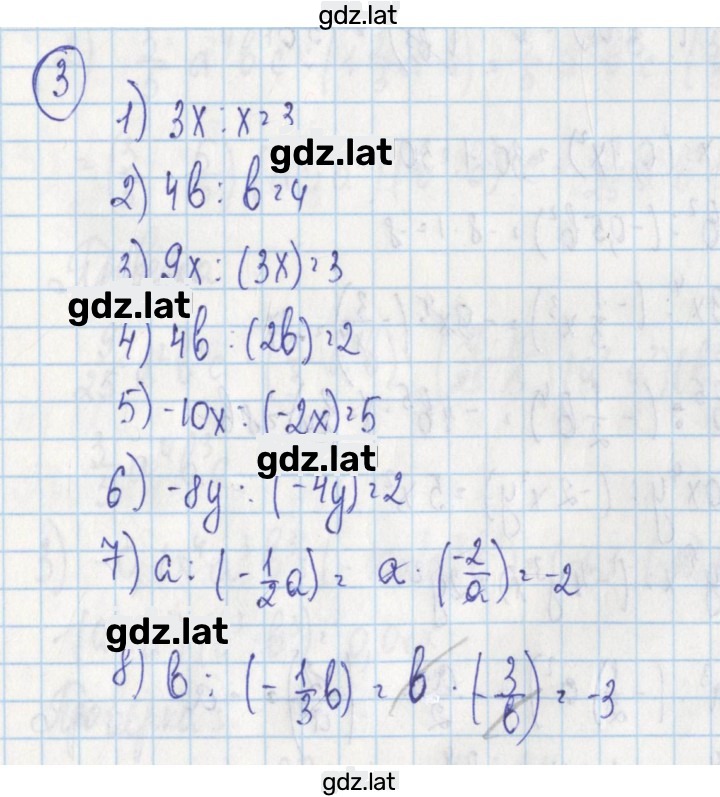 gdz.lat
3
1) 3x : x = 3
gdz.lat
2) 4b : b = 4
3) 9x : (3x) = 3
gdz.lat
4) 4b : (2b) = 2
5) -10x : (-2x) = 5
gdz.lat
6) -8y : (-4y) = 2
7) a : (-1/2 a) = a · (-2/a) = -2
gdz.lat
8) b : (-1/3 b) = b · (-3/b) = -3
gdz.lat